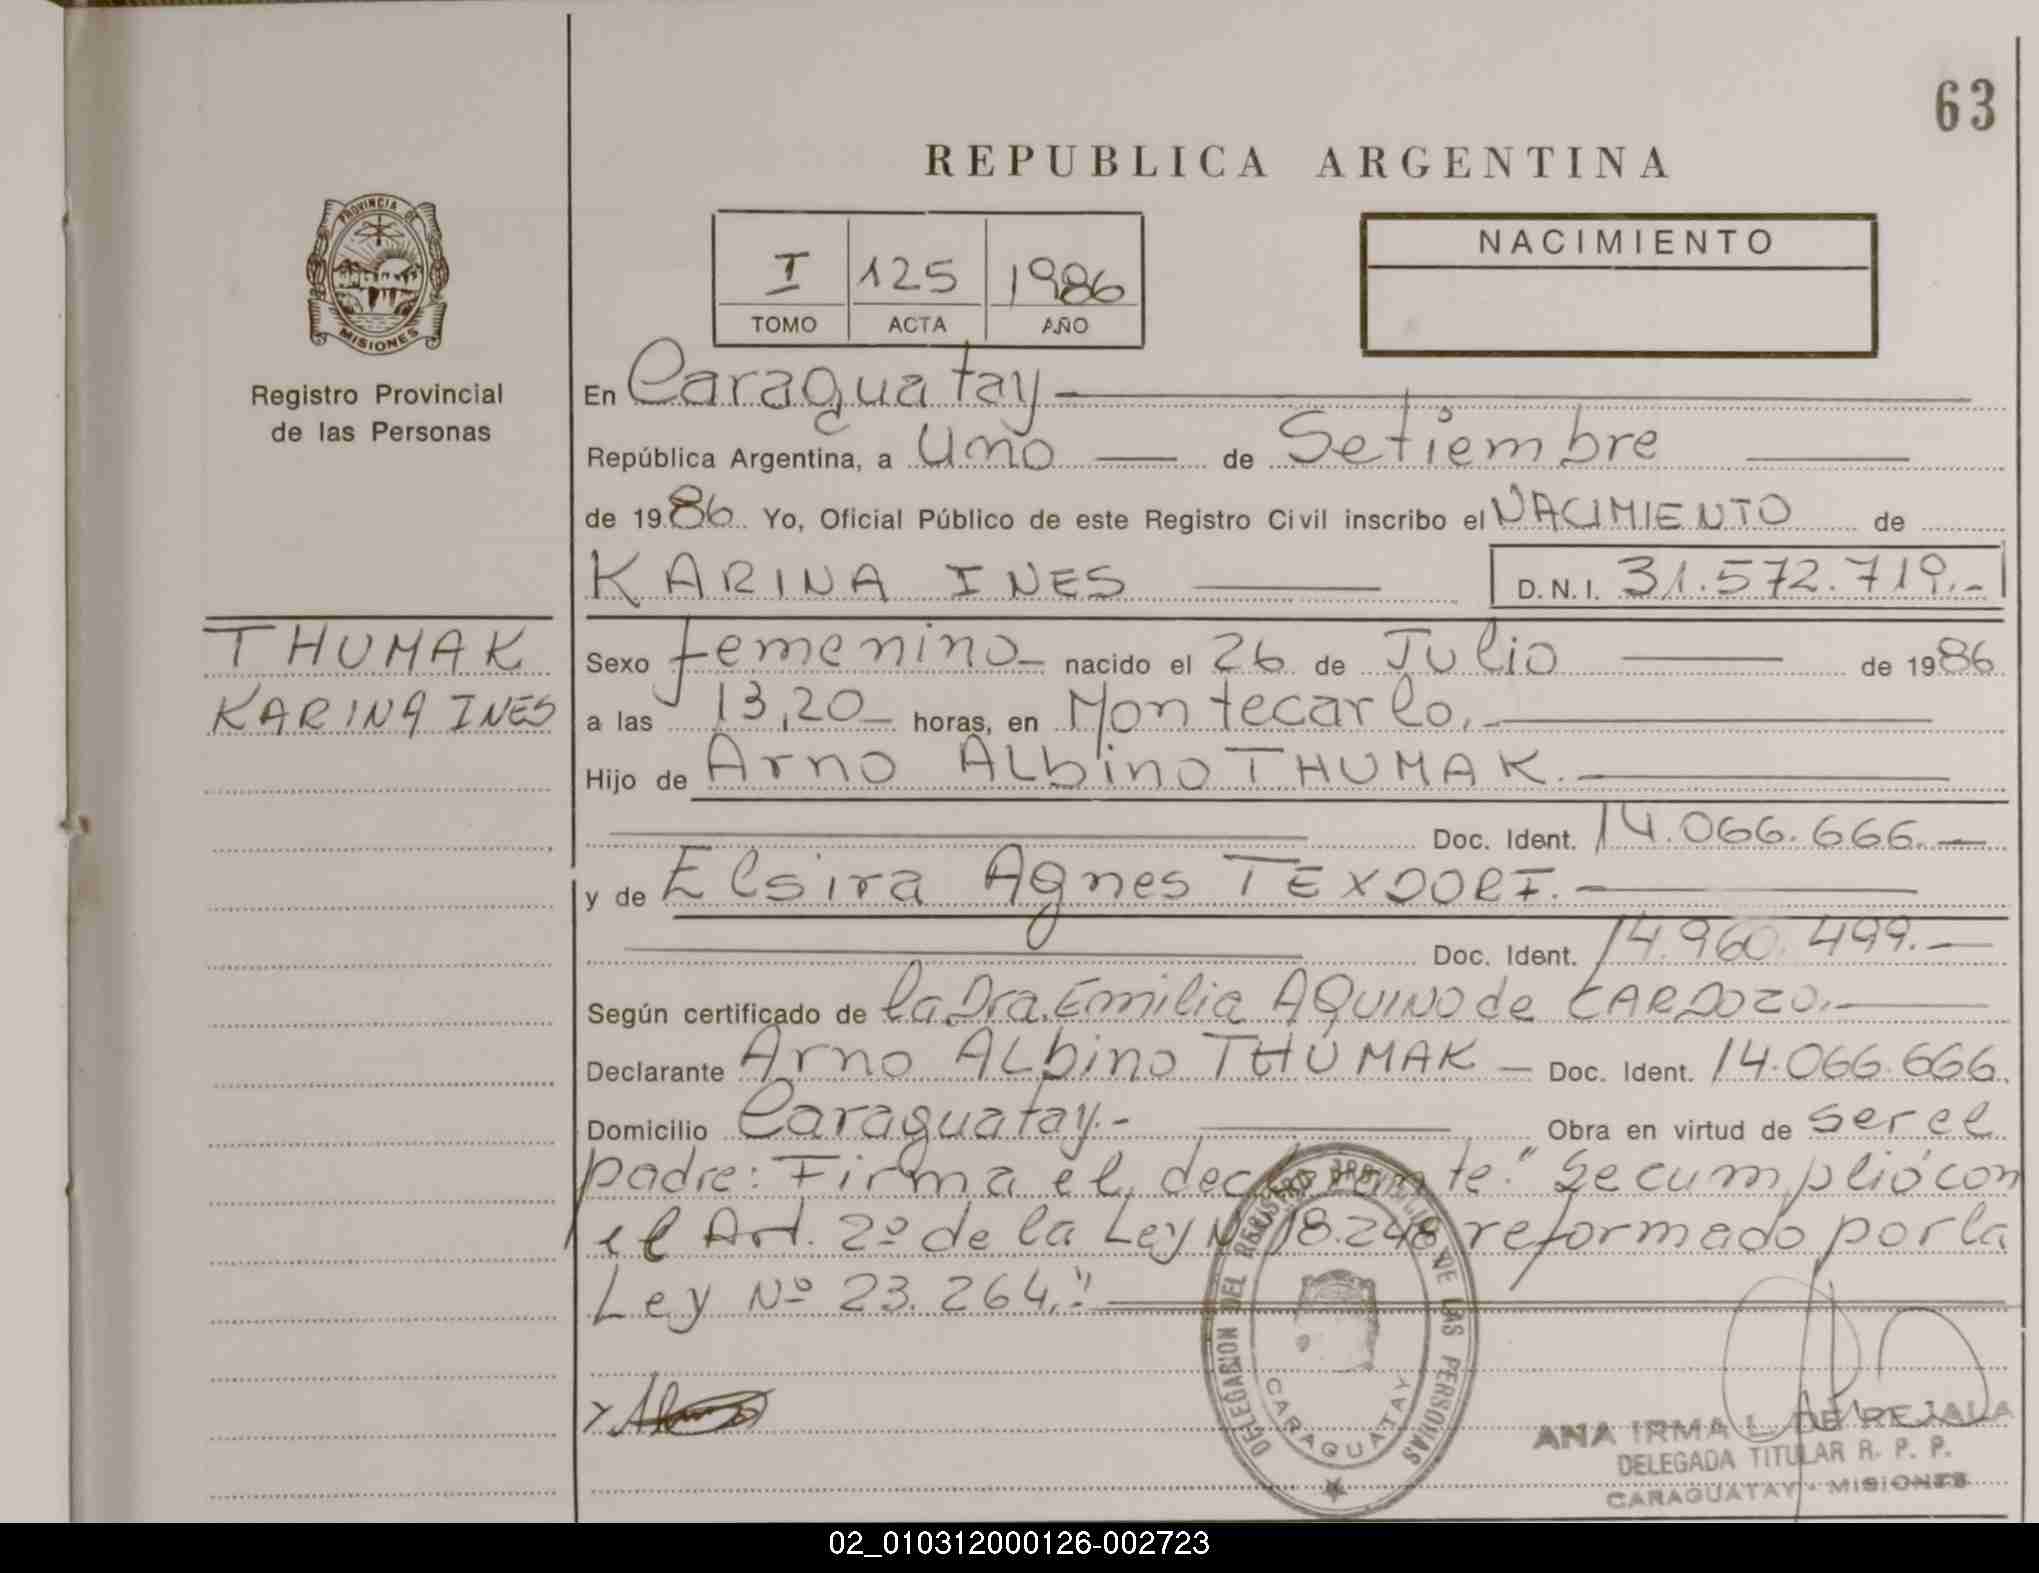 63
REPUBLICA ARGENTINA
PROVINCIA DE
MISIONES
Registro Provincial
de las Personas
I 125 1986
TOMO ACTA AÑO
NACIMIENTO
En Caraguatay
República Argentina, a Uno de Setiembre
de 1986 Yo, Oficial Público de este Registro Civil inscribo el NACIMIENTO de
KARINA INES D.N.I. 31.572.719.-
THUMAK
KARINA INES
Sexo femenino nacido el 26 de Julio de 1986
a las 13,20 horas, en Montecarlo.
Hijo de Arno Albino THUMAK.
Doc. Ident. 14.066.666.
y de Elsira Agnes TEXDORF.
Doc. Ident. 14.960.499.
Según certificado de la Dra. Emilia AQUINO de CARDOZO.
Declarante Arno Albino THUMAK Doc. Ident. 14.066.666.
Domicilio Caraguatay.- Obra en virtud de ser el
padre: Firma el declarante." Se cumplió con
el Art. 2º de la Ley Nº 18.248 reformado por la
Ley Nº 23.264."
DELEGACION DEL REGISTRO PROVINCIAL DE LAS PERSONAS
CARAGUATAY
ANA IRMA L. DE REJALA
DELEGADA TITULAR R. P. P.
CARAGUATAY - MISIONES
02_010312000126-002723